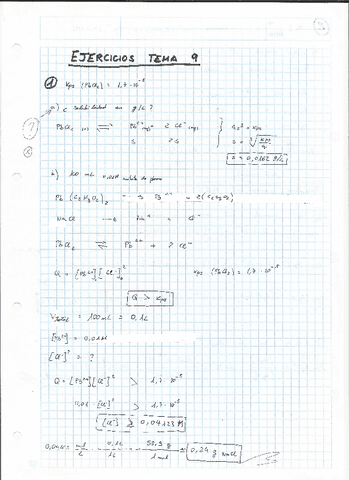 EJERCICIOS TEMA 9
① Kps (PbCl₂) = 1,7·10⁻⁵
a) ¿ solubilidad en g/L?
PbCl₂ (s) ⇌ Pb²⁺(aq) 2 Cl⁻(aq) 4s³ = Kps
s 2s s = ∛(Kps/4)
s = 0,0162
b) 100 mL 0,01M
Pb (C₂H₃O₂)₂ → Pb²⁺ + 2(C₂H₃O₂)⁻
NaCl → Na⁺ + Cl⁻
PbCl₂ ⇌ Pb²⁺ + 2 Cl⁻
Q = [Pb²⁺]₀ [Cl⁻]₀² Kps (PbCl₂) = 1,7·10⁻⁵
Q > Kps
V Total = 100 mL = 0,1L
[Pb²⁺] = 0,01M
[Cl⁻] = ?
Q = [Pb²⁺][Cl⁻]² > 1,7·10⁻⁵
0,01·[Cl⁻]² > 1,7·10⁻⁵
[Cl⁻] ≥ 0,04123 M
0,1L 58,5 g = 0,24 g NaCl
1 mol